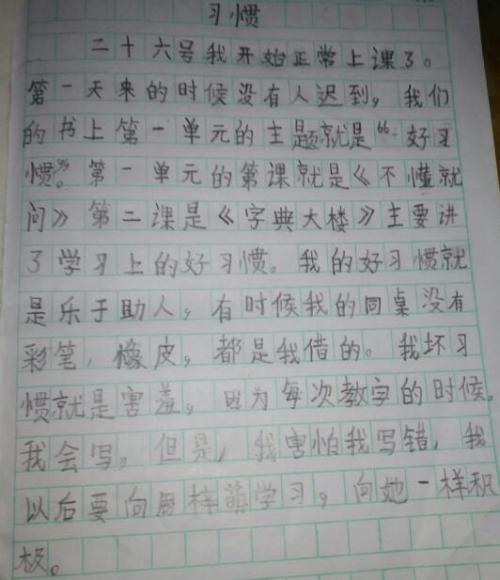 习惯
二十六号我开始正常上课了。
第一天来的时候没有人迟到，我们
的书上第一单元的主题就是“好习
惯”。第一单元的第课就是《不懂就
问》第二课是《字典大楼》主要讲
了学习上的好习惯。我的好习惯就
是乐于助人，有时候我的同桌没有
彩笔，橡皮，都是我借的。我坏习
惯就是害羞，因为每次教字的时候，
我会写，但是，我害怕我写错，我
以后要向梓萌学习，向她一样积
极。